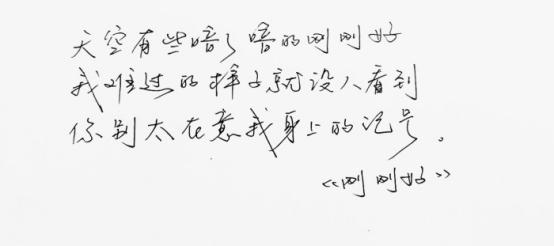 天空有些暗了暗的刚刚好
我难过的样子就没人看到
你别太在意我身上的记号。
《刚刚好》